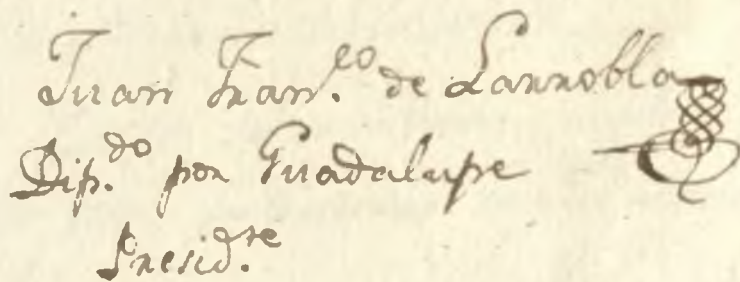 Juan Fran.co de Larrobla
Dip.do por Guadalupe
Presid.te